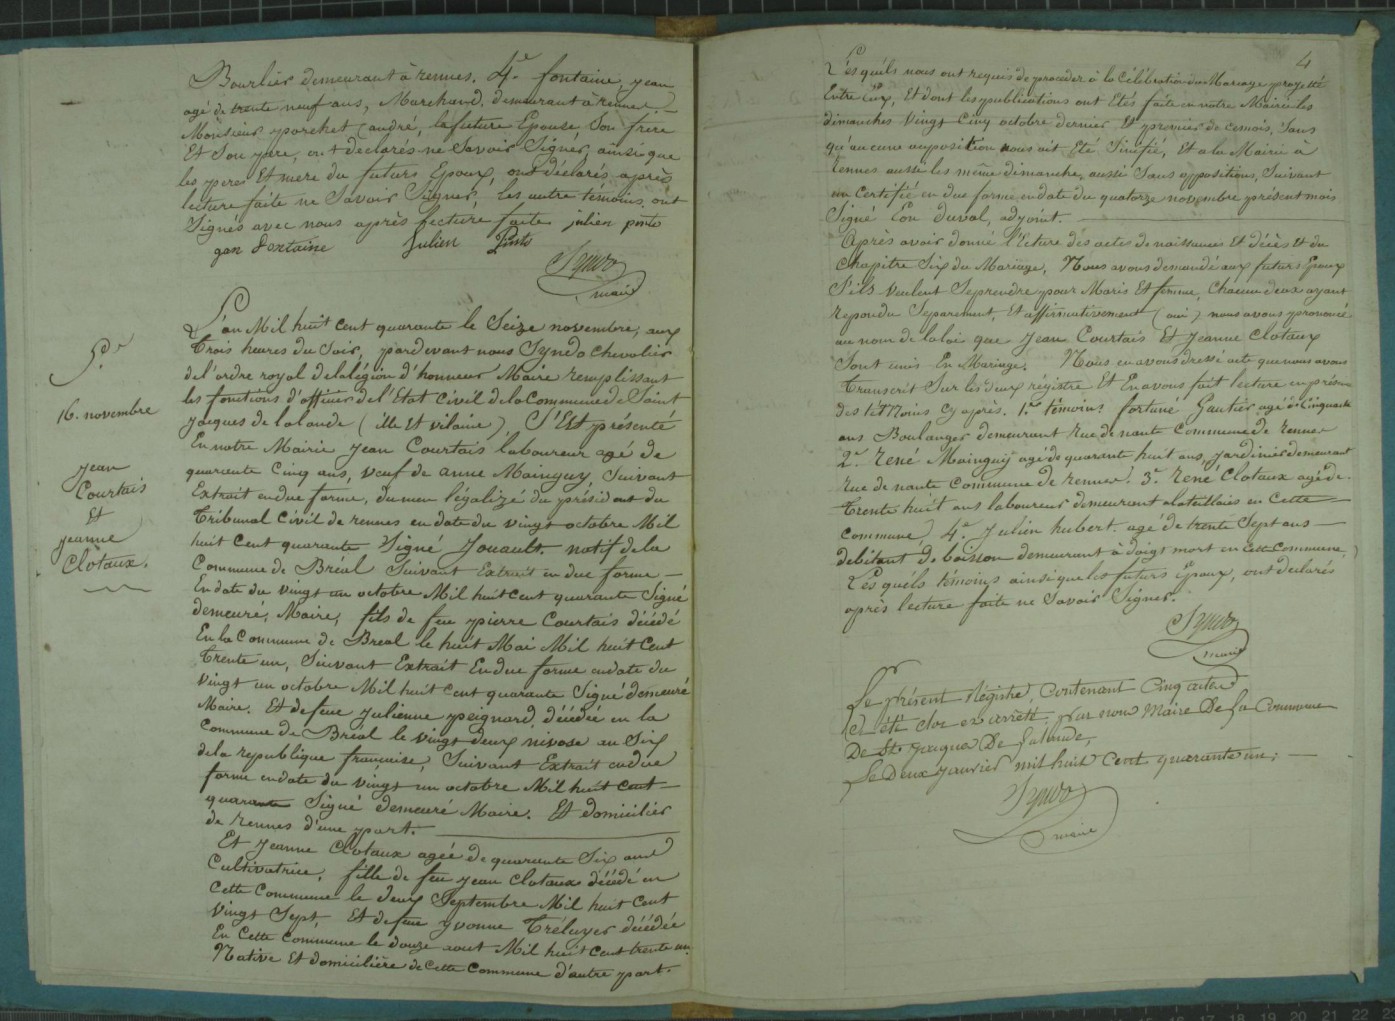 Bourlier demeurant à rennes. 4.e fontaine jean
agé de trente neuf ans, Marchand, demeurant à rennes. —
Monsieur porchet (andré, la future Epouse, Son frere
Et Son pere, ont declarés ne Savoir Signer, ainsi que
les peres Et mere du futurs Epoux, ont déclarés après
lecture faite ne Savoir Signer, les autre témoins, ont
Signés avec nous après lecture faite julien pinto
jan Fontaine Julien Pinto
Syndo
maire
5.e
16. novembre
jean
Courtais
Et
jeanne
Clotaux.
L'an Mil huit Cent quarante le Seize novembre, aux
Trois heures du Soir, pardevant nous Syndo Chevalier
de l'ordre royal de la légion d'honneur Maire remplissant
les fonctions d'officier de l'Etat Civil de la Commune de Saint
Jacques de la lande (ille Et vilaine), S'Est présenté
En notre Mairie jean Courtais laboureur agé de
quarente Cinq ans, veuf de anne Mainguy, Suivant
Extrait en due forme, dumen légalizé du présidant du
Tribunal Civil de rennes en date du vingt octobre Mil
huit Cent quarante Signé Jouault. natif de la
Commune de Breal Suivant Extrait en due forme —
En date du vingt un octobre Mil huit cent quarante Signé
demeuré, Maire, fils de feu pierre Courtais décédé
En la Commune de Breal le huit Mai Mil huit Cent
Trente un, Suivant Extrait En due forme en date du
vingt un octobre Mil huit cent quarante Signé demeuré
Maire. Et de feue julienne peignard décédée en la
Commune de Breal le vingt deux nivose an Six
de la republique française, Suivant Extrait en due
forme en date du vingt un octobre Mil huit Cent —
quarante Signé demeuré Maire. Et domicilier
de rennes d'une part. —
Et Jeanne Clotaux agée de quarante Six ans
Cultivatrice, fille de feu jean Clotaux décédé en
Cette Commune le deux Septembre Mil huit Cent
vingt Sept Et de feue yvonne Tréluyer décédée
En Cette Commune le douze aout Mil huit Cent trente un.
Native Et domicilière de Cette Commune d'autre part.
4
Lesquéls nous ont requis de proceder à la Célébration du Mariage projetté
Entre Eux, Et dont les publications ont Etés faite en notre Mairie les
dimanches vingt Cinq octobre dernier Et premier de ce mois, Sans
qu'aucune opposition nous ait Eté Sinifié, Et a la Mairie à
Rennes aussi les même dimanche, aussi Sans oppositions, Suivant
un Certifié en due forme en date du quatorze novembre présent mois
Signé Con duval, adjoint. —
Après avoir donné lecture des actes de naissances Et décès Et du
Chapitre Six du Mariage, Nous avons demandé aux futurs Epoux
S'ils veulent Se prendre pour Maris Et femme, Chacun deux ayant
repondu Separement, Et affirmativement (oui) nous avons prononcé
au nom de la loi que jean Courtais Et jeanne Clotaux
Sont unis En Mariage. Nous en avons dressé acte que nous avons
Transcrit Sur les deux régistre Et En avons fait lecture en présence
des témoins Cy après. 1.er témoins fortuné Gautier agé de Cinquante
ans Boulanger demeurant rue de nante Commune de rennes
2.e René Mainguy agé de quarante huit ans, jardinier demeurant
rue de nante Commune de rennes. 3.e rené Clotaux agé de
Trente huit ans laboureur demeurant à la teillais en Cette —
commune, 4.e Julien hubert. agé de trente Sept ans —
débitant de boisson demeurant à doigt mort en Cette Commune,
Lesquéls témoins ainsi que les futurs Epoux, ont declaré
après lecture faite ne Savoir Signer.
Syndo
maire
Le présent Régistre, Contenant Cinq actes
a été clos et arrêté par nous Maire De La Commune
De St. Jacques De Lalande,
Le Deux janvier mil huit Cent quarante un; —
Syndo
maire